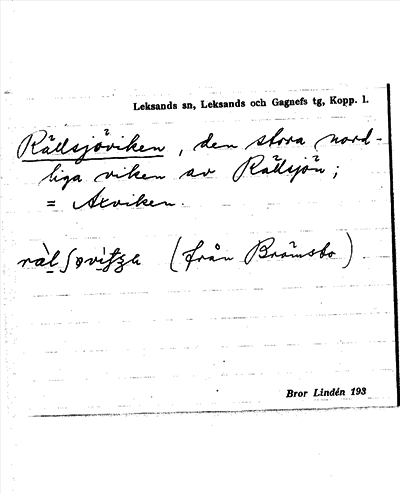 Leksands sn, Leksands och Gagnefs tg, Kopp. l.
Rällsjöviken, den stora nord-
liga viken av Rällsjön;
= Axviken.
(från Brömsbo).
Bror Lindén 193